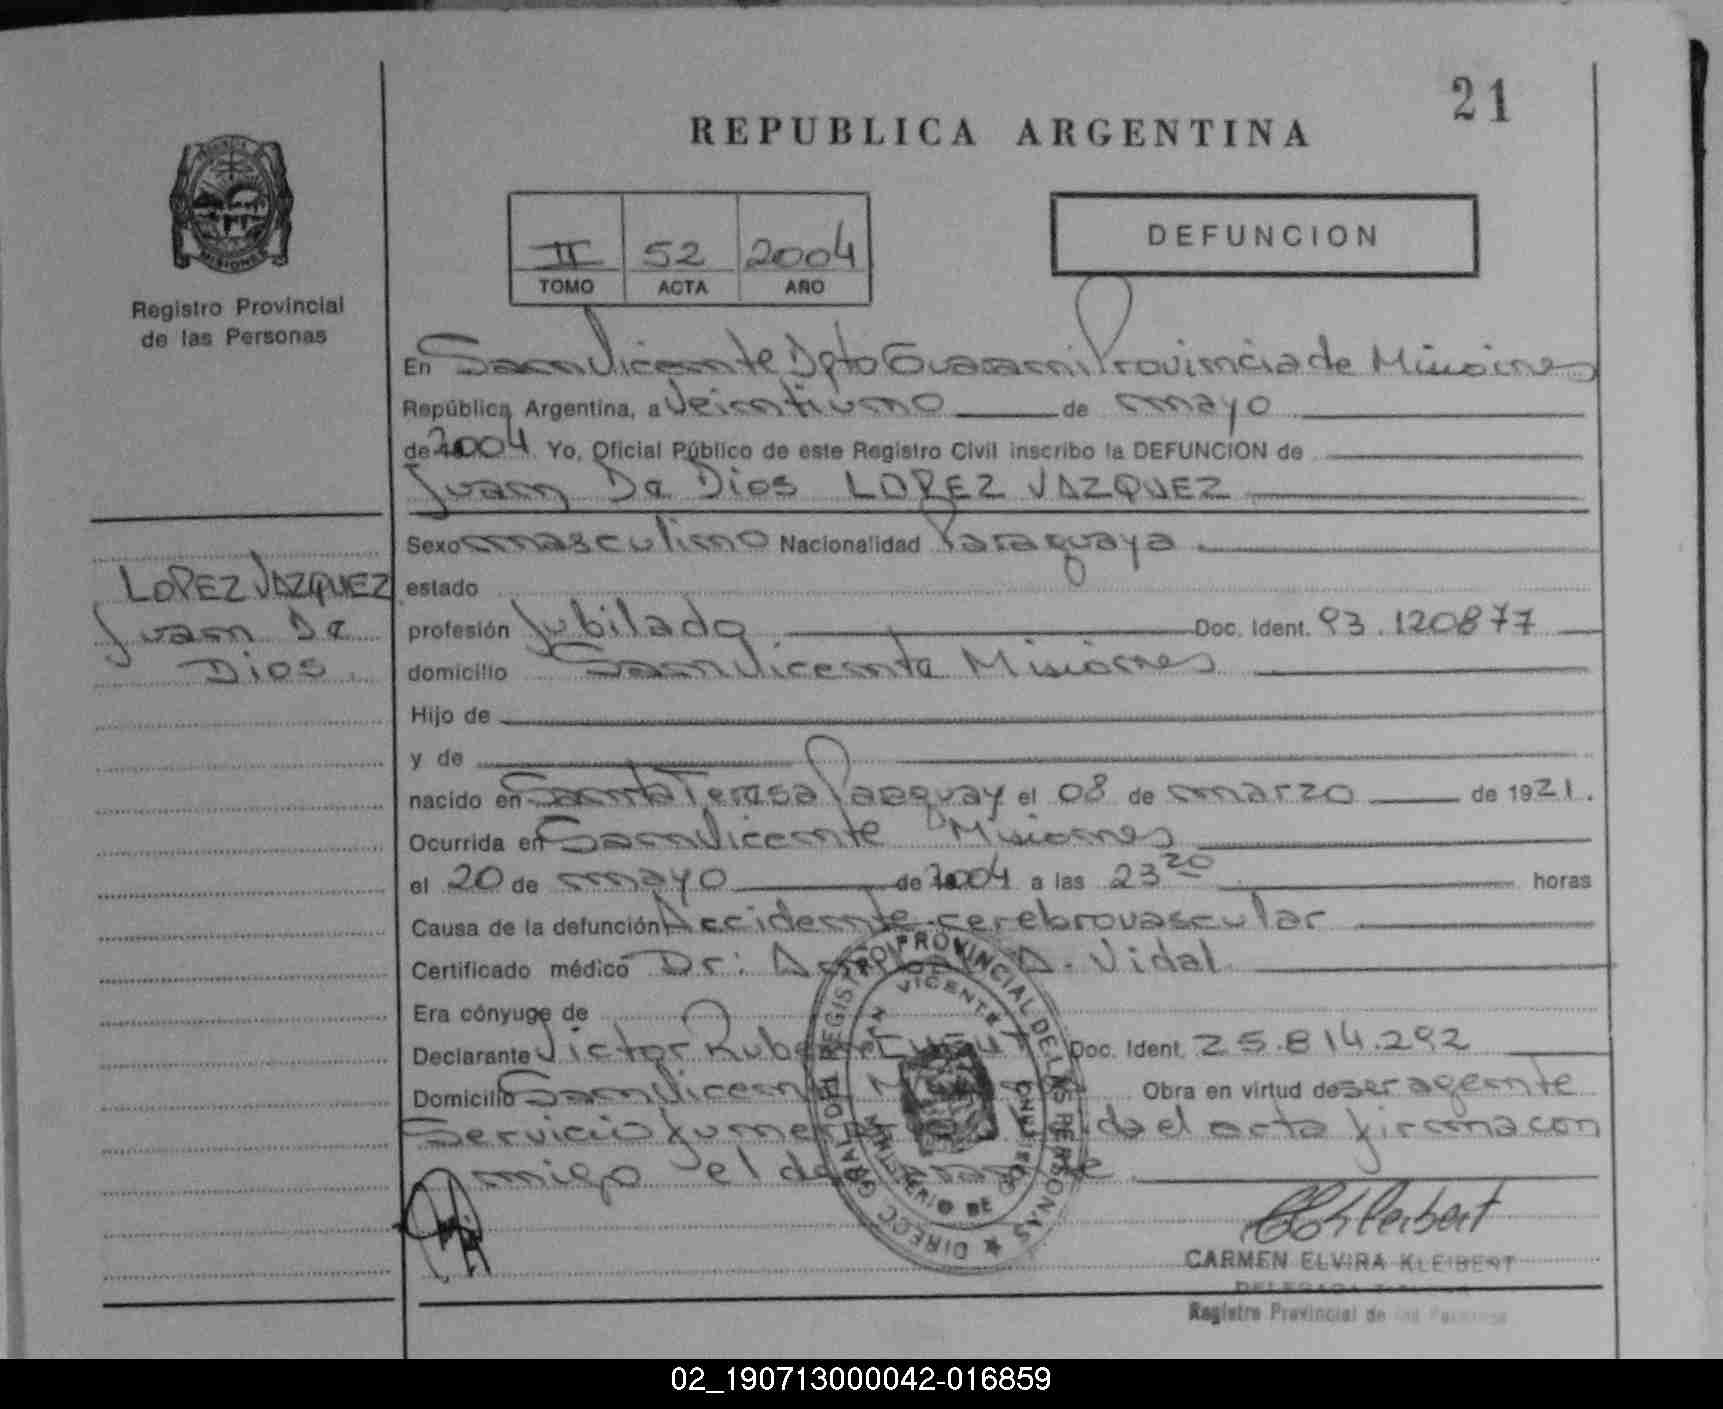 21
REPUBLICA ARGENTINA
MISIONES
Registro Provincial
de las Personas
II 52 2004
TOMO ACTA AÑO
DEFUNCION
En San Vicente Dpto Guarani Provincia de Misiones
República Argentina, a veintiuno de mayo
de 2004 Yo, Oficial Público de este Registro Civil inscribo la DEFUNCION de
Juan De Dios LOPEZ VAZQUEZ
LOPEZ VAZQUEZ
Juan De
Dios
Sexo masculino Nacionalidad Paraguaya
estado
profesión Jubilado Doc. Ident. 93.120877
domicilio San Vicente Misiones
Hijo de
y de
nacido en Santa Teresa Paraguay el 08 de marzo de 1921.
Ocurrida en San Vicente Misiones
el 20 de mayo de 2004 a las 23 20 horas
Causa de la defunción Accidente cerebrovascular
Certificado médico Dr: A. Vidal
Era cónyuge de
Declarante Victor Ruben Doc. Ident. 25.814.292
Domicilio San Vicente Obra en virtud de ser agente
Servicio el acta firma con
migo el
REGISTRO PROVINCIAL DE LAS PERSONAS
SAN VICENTE
MINISTERIO DE GOBIERNO
DIRECC. GRAL. DEL
CARMEN ELVIRA KLEIBERT
DELEGADA
Registro Provincial de las Personas
02_190713000042-016859